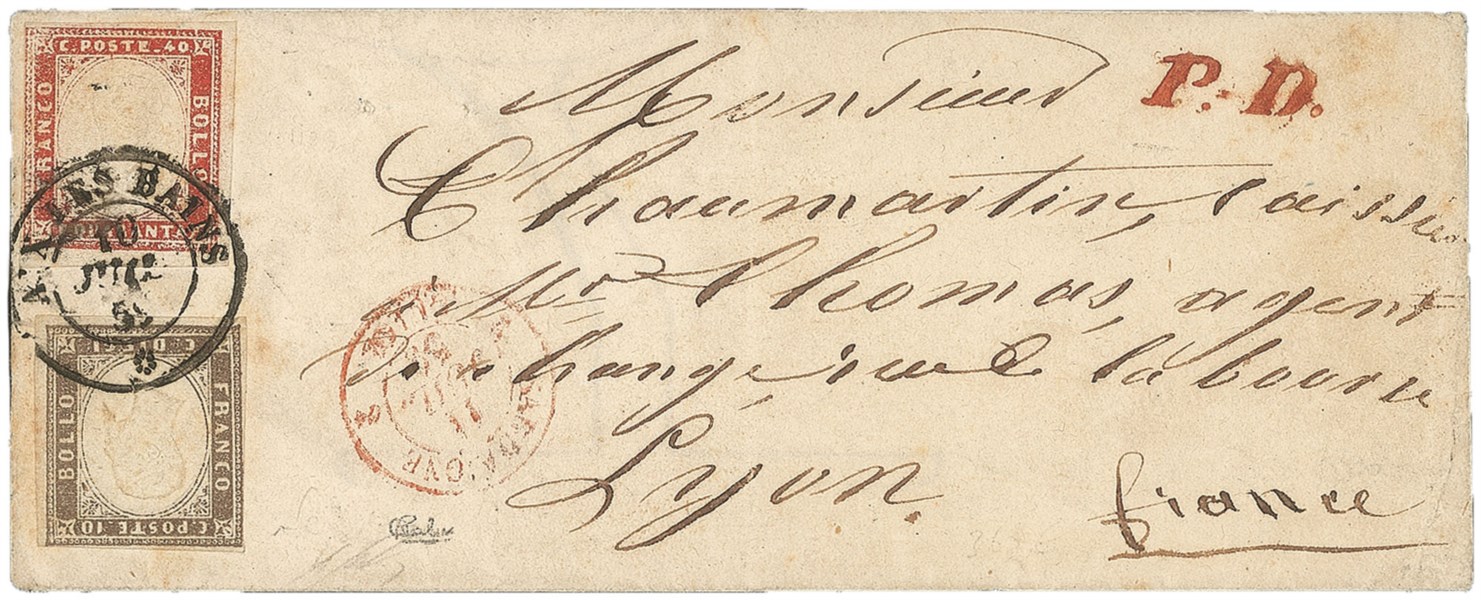 C. POSTE. 40
FRANCO
BOLLO
QUARANTA
AIX LES BAINS
10
JUIL
59
C. DIECI
BOLLO
FRANCO
C. POSTE 10
P.D.
Monsieur
Chaumartin, caissier
Mr Thomas, agent
de change, rue de la bourse
Lyon.
france
CULOZ